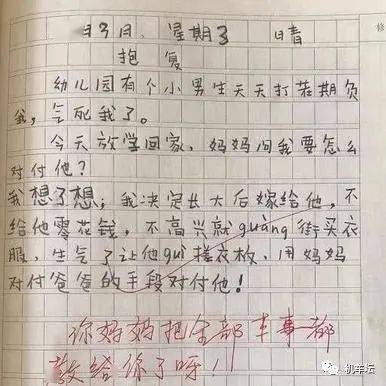 日3日，星期3 日晴
抱复
幼儿园有个小男生天天打若期负
我，气死我了。
今天放学回家，妈妈问我要怎么
对付他？
我想了想；我决定长大后嫁给他，不
给他零花钱，不高兴就guàng街买衣
服，生气了让他guì搓衣板，用妈妈
对付爸爸的手段对付他！
你妈妈把全部本事都
教给你了呀！
机车坛